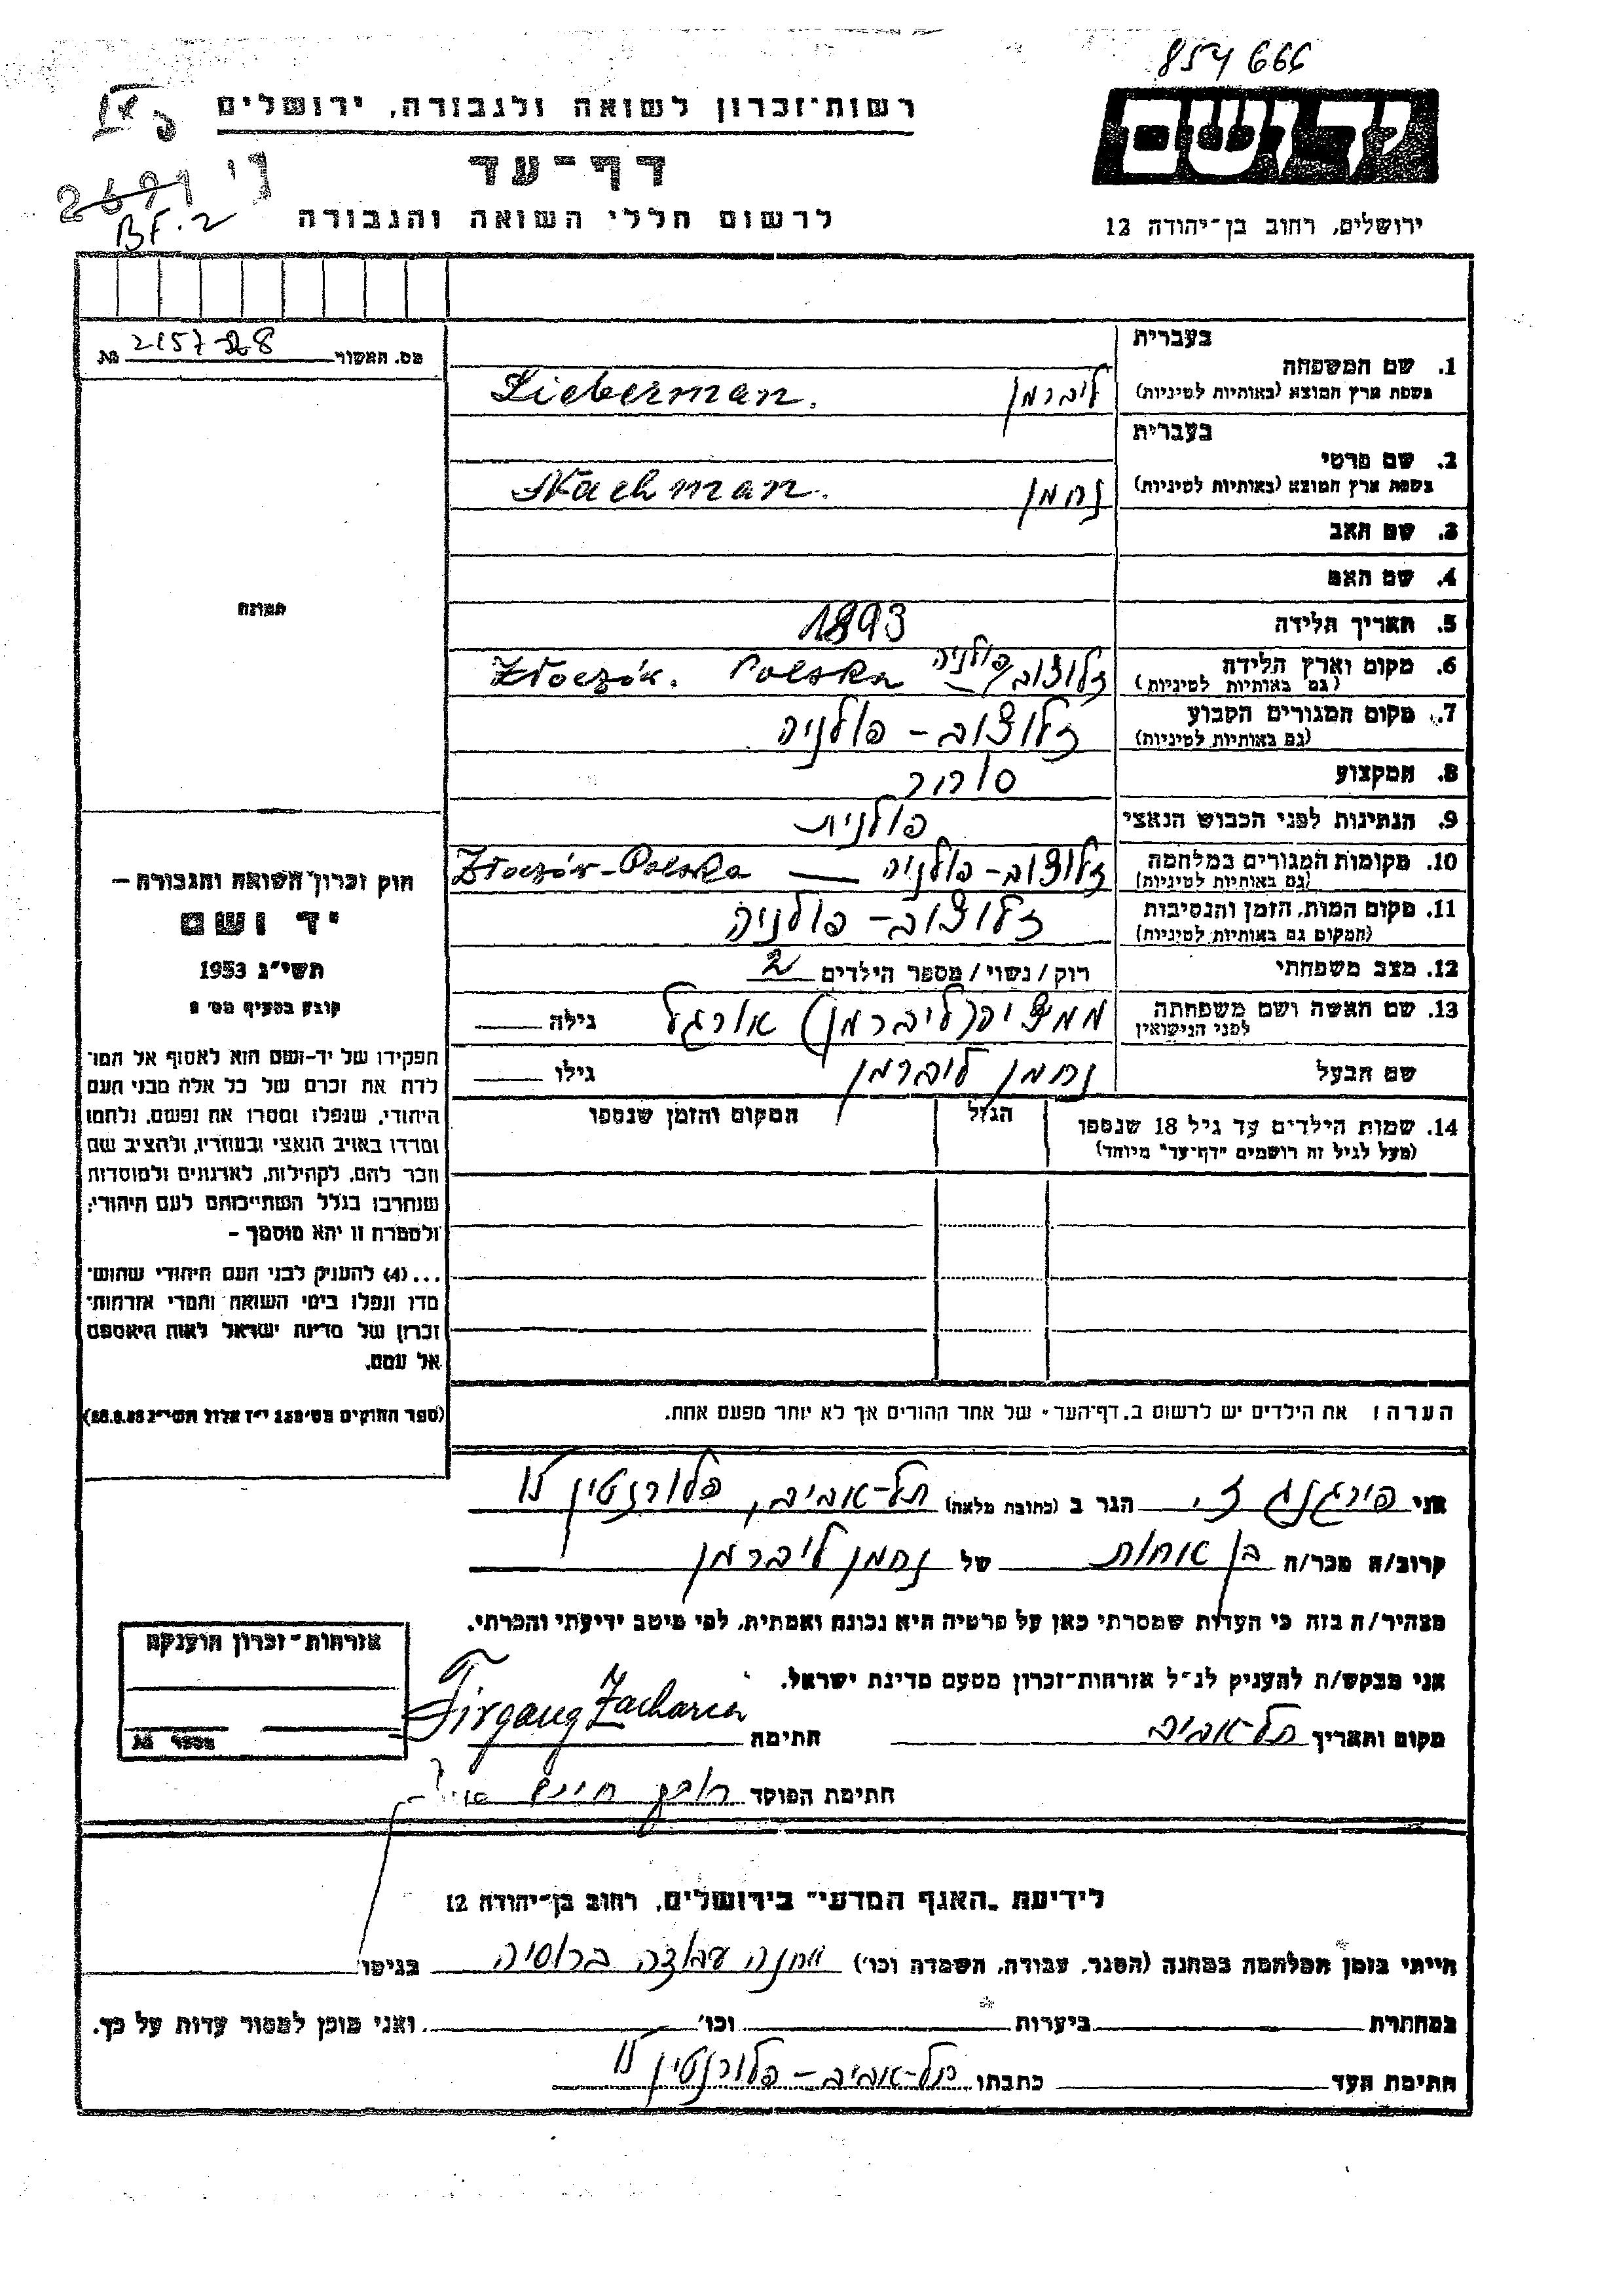 854 666
רשות־זכרון לשואה ולגבורה, ירושלים
יד ושם
דף־עד
2691
BF.2
לרשום חללי השואה והגבורה
ירושלים, רחוב בן־יהודה 12
מס. האשור 2157 28 №
בעברית
1. שם המשפחה
בשפת ארץ המוצא (באותיות לטיניות)
ליברמן Lieberman.
בעברית
2. שם פרטי
בשפת ארץ המוצא (באותיות לטיניות)
נחמן Nachman.
3. שם האב
4. שם האם
תמונה
5. תאריך הלידה 1893
6. מקום וארץ הלידה
(גם באותיות לטיניות)
זלוצוב/פולניה Złoczów. Polska
7. מקום המגורים הקבוע
(גם באותיות לטיניות)
זלוצוב – פולניה
8. המקצוע סוחר
9. הנתינות לפני הכבוש הנאצי פולנית
10. מקומות המגורים במלחמה
(גם באותיות לטיניות)
זלוצוב – פולניה — Złoczów – Polska
11. מקום המות, הזמן והנסיבות
(המקום גם באותיות לטיניות)
זלוצוב – פולניה
12. מצב משפחתי רוק / נשוי / מספר הילדים 2
13. שם האשה ושם משפחתה
לפני הנישואין
(ליברמן) גילה
שם הבעל נחמן ליברמן גילו
14. שמות הילדים עד גיל 18 שנספו
(מעל לגיל זה רושמים "דף־עד" מיוחד)
הגיל
המקום והזמן שנספו
חוק זכרון השואה והגבורה –
יד ושם
תשי"ג 1953
קובע בסעיף מס׳
תפקידו של יד-ושם הוא לאסוף אל המו־
לדת את זכרם של כל אלה מבני העם
היהודי, שנפלו ומסרו את נפשם, נלחמו
ומרדו באויב הנאצי ובעוזריו, ולהציב שם
וזכר להם, לקהילות, לארגונים ולמוסדות
שנחרבו בגלל השתייכותם לעם היהודי;
ולמטרה זו יהא מוסמך –
...(4) להעניק לבני העם היהודי שהוש־
מדו ונפלו בימי השואה והמרי אזרחות־
זכרון של מדינת ישראל לאות היאספם
אל עמם.
(ספר החוקים מס׳ 132 י"ז אלול תשי"ג 28.8.53)
הערה: את הילדים יש לרשום ב„דף־העד" של אחד ההורים אך לא יותר מפעם אחת.
אני פירגנג ז. הגר ב (כתובת מלאה) תל-אביב, פלורנטין
קרוב/ה מכר/ה בן אחות של נחמן ליברמן
מצהיר/ה בזה כי העדות שמסרתי כאן על פרטיה היא נכונה ואמתית, לפי מיטב ידיעתי והכרתי.
אני מבקש/ת להעניק לנ"ל אזרחות־זכרון מטעם מדינת ישראל.
מקום ותאריך תל-אביב חתימה Firgang Zacharia
אזרחות־זכרון הוענקה
מספר №
חתימת הפוקד
לידיעת „האגף המדעי" בירושלים, רחוב בן־יהודה 12
הייתי בזמן המלחמה במחנה (הסגר, עבודה, השמדה וכו׳) מחנה עבודה ברוסיה בגיטו
במחתרת ביערות וכו׳ ואני מוכן למסור עדות על כך.
חתימת העד כתבתו תל-אביב – פלורנטין